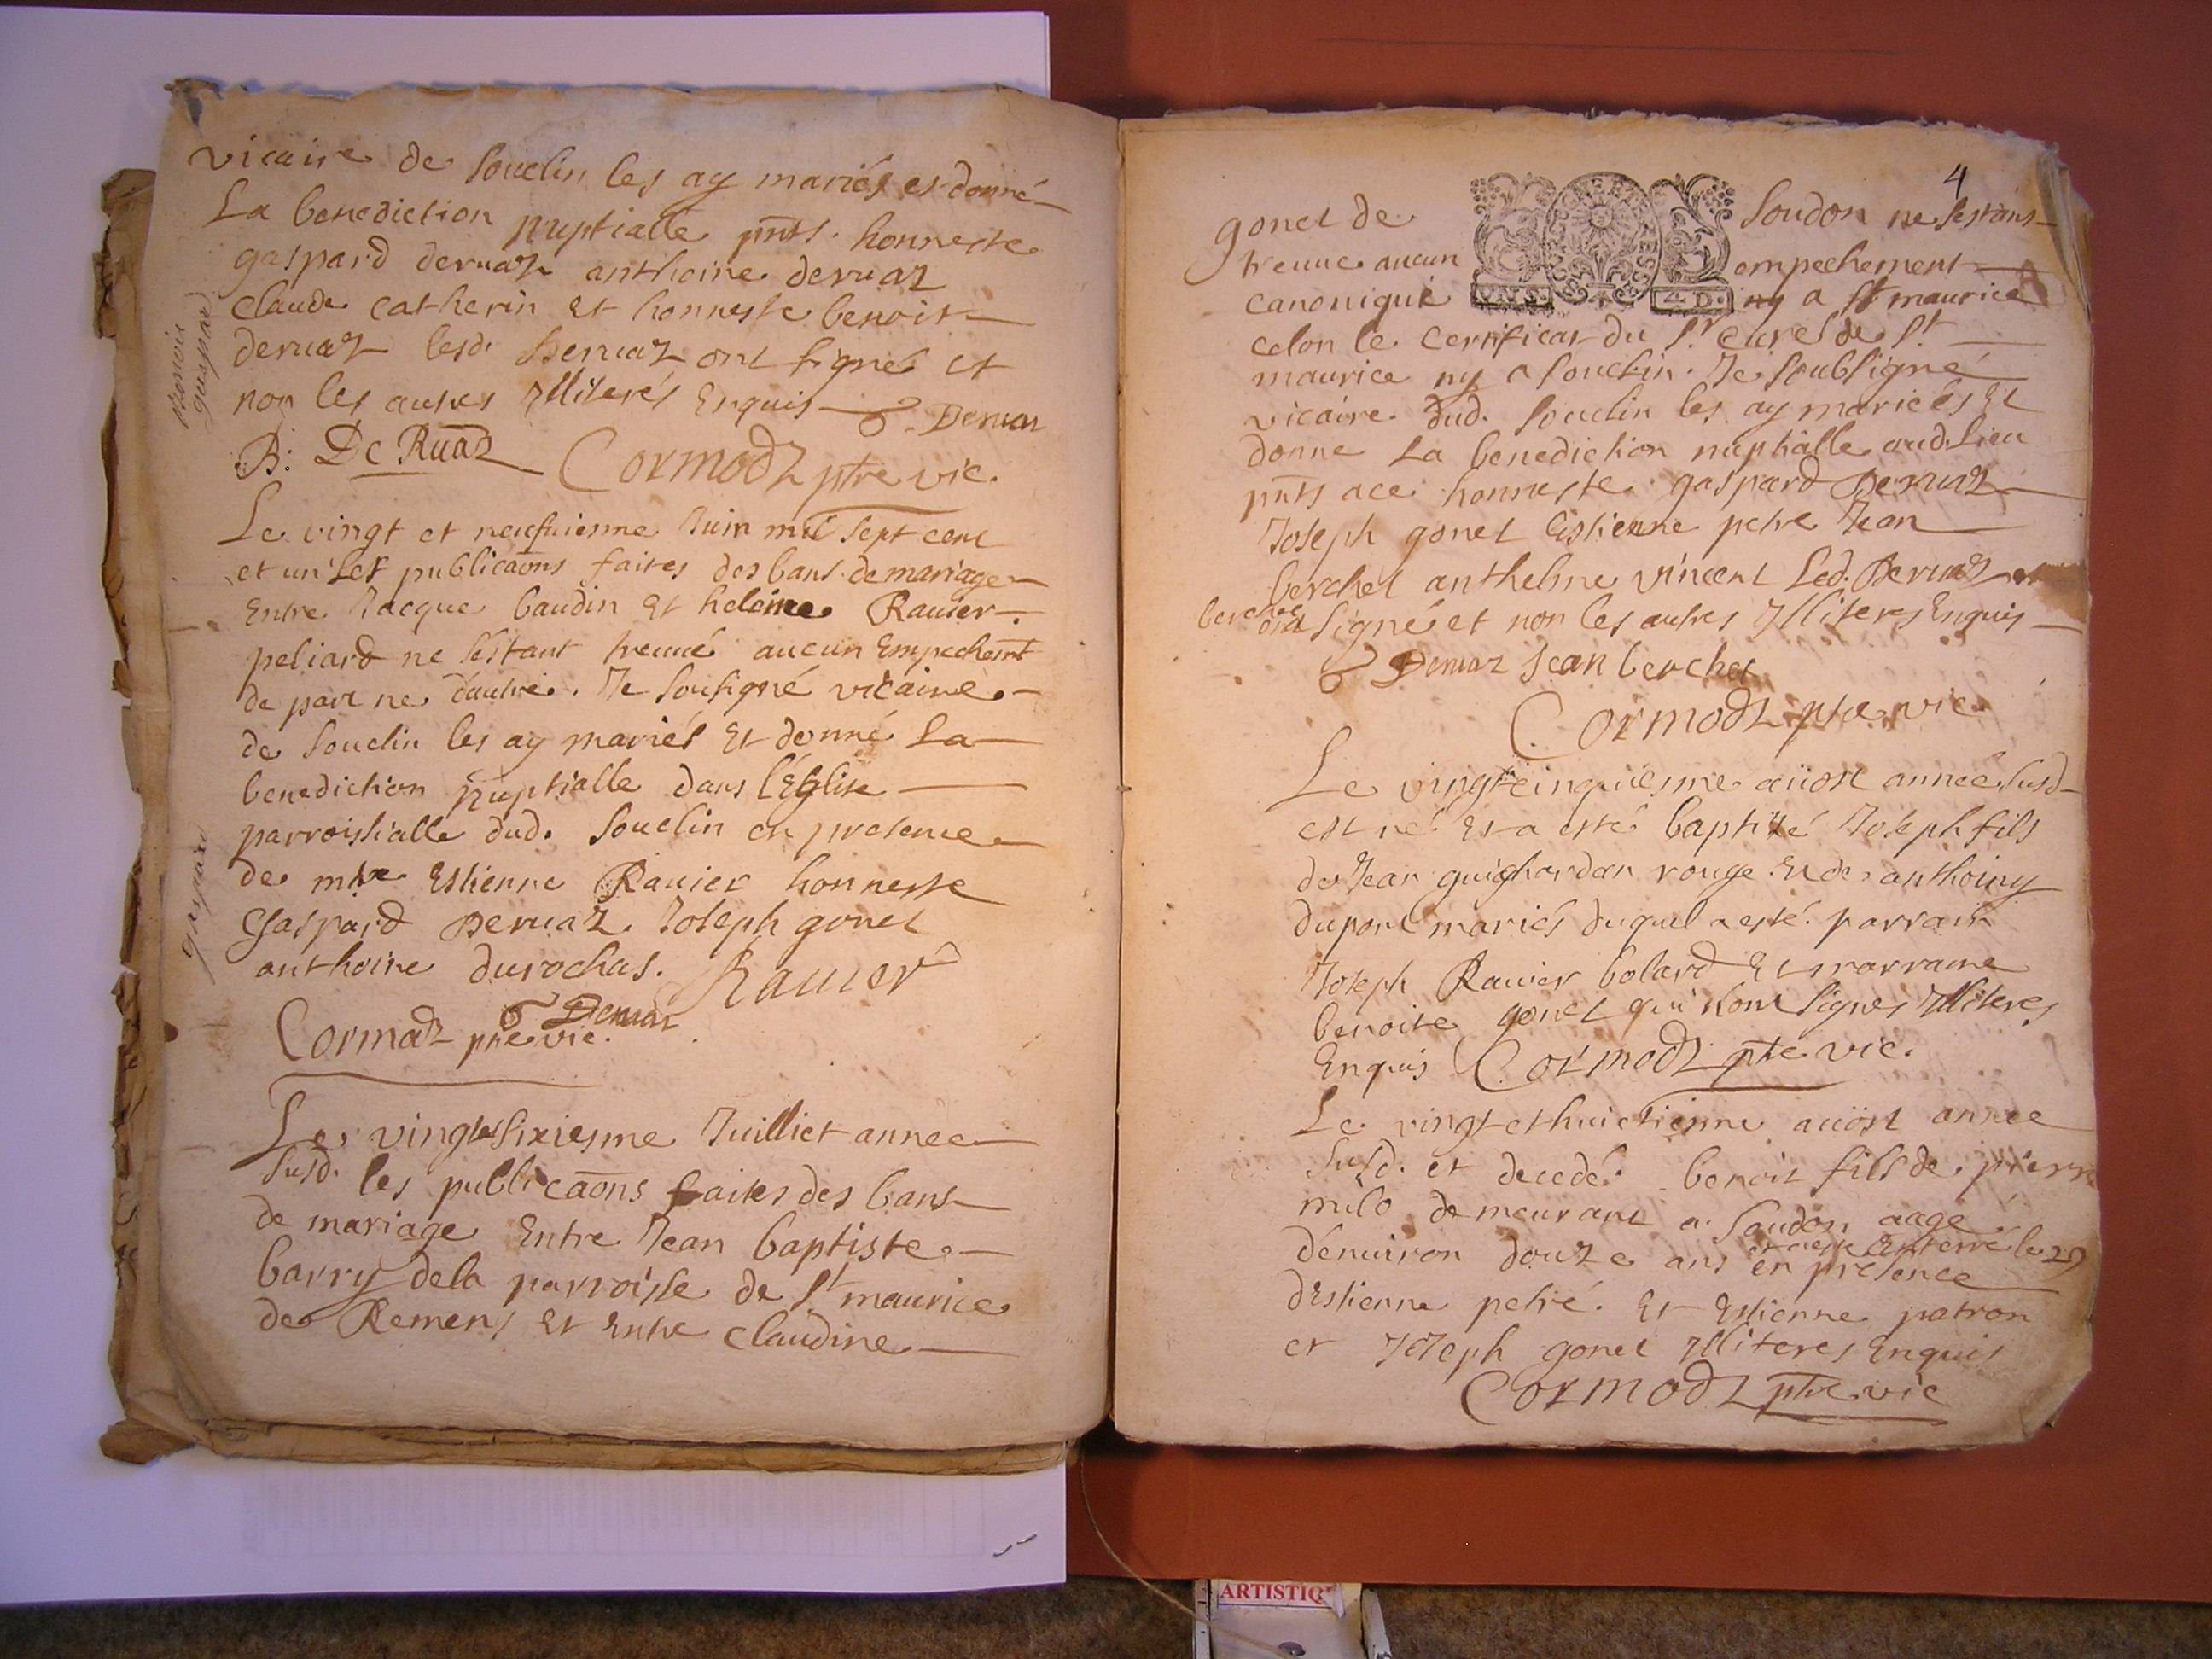 vicaire de Souclin les ay mariés et donné
La benediction nuptialle pnts. honneste
gaspard deruaz anthoine deruaz
Claude Catherin Et honneste benoit
deruaz lesd. Deruaz ont signés et
non les autres Illiterés Enquis Deruaz
B. De Ruaz Cormodz ptre vic.
benois gaspard
Le vingt et neufuieme Juin mil sept cent
et un Les publicaons faites des bans de mariage
Entre Jacque baudin Et heleine Rauier
peliard ne s'estant treuué aucun Empechemt
de part ne d'autre. Je sousigné vicaire
de Souclin les ay mariés Et donné La
benediction Nuptialle dans l'Eglise
parroissialle dud. Souclin en presence
de mtre Estienne Rauier honneste
Gaspard Deruaz. Joseph gonet
anthoine durochas. Rauier
gaspard
Deruaz
Cormodz ptre vic.
Le vingt Sixiesme Juilliet annee
susd. les publicaons faites des bans
de mariage Entre Jean baptiste
barry de la parroisse de St maurice
de Remens Et Entre Claudine
4
gonet de Soudon ne s'estans
treuue aucun empechement
canonique ny a St maurice
celon le certificat du Sr curé de St
maurice ny a Souclin. Je soubsigné
vicaire dud. Souclin les ay mariées Et
donne La benediction nuptialle aud. lieu
pnts a ce honneste gaspard Deruaz
Joseph gonet Estienne petre Jean
berchet anthelme vincent Led. Deruaz et
berchet ont signé et non les autres Illiteres Enquis
Deruaz Jean berchet
Cormodz ptre vic.
UN S. 4 D.
Le vingt cinquiesme aüost année susd
est né Et a esté baptisé Joseph fils
de Jean guighardan rouge Et de anthoiny
dupont mariés duquel a esté parrain
Joseph Rauier bolard Et marraine
benoite gonet qui n'ont signés Illiteres
Enquis Cormodz ptre vic.
Le vingt et huictieme aüost annee
susd. et decedé benoit fils de pierre
milo demeurant a Soudon aagé
d'enuiron douze ans et a esté Enterré le 29
en presence
d'Estienne petre. Et Estienne patron
et Joseph gonet Illiteres Enquis
Cormodz ptre vic
ARTISTIQ